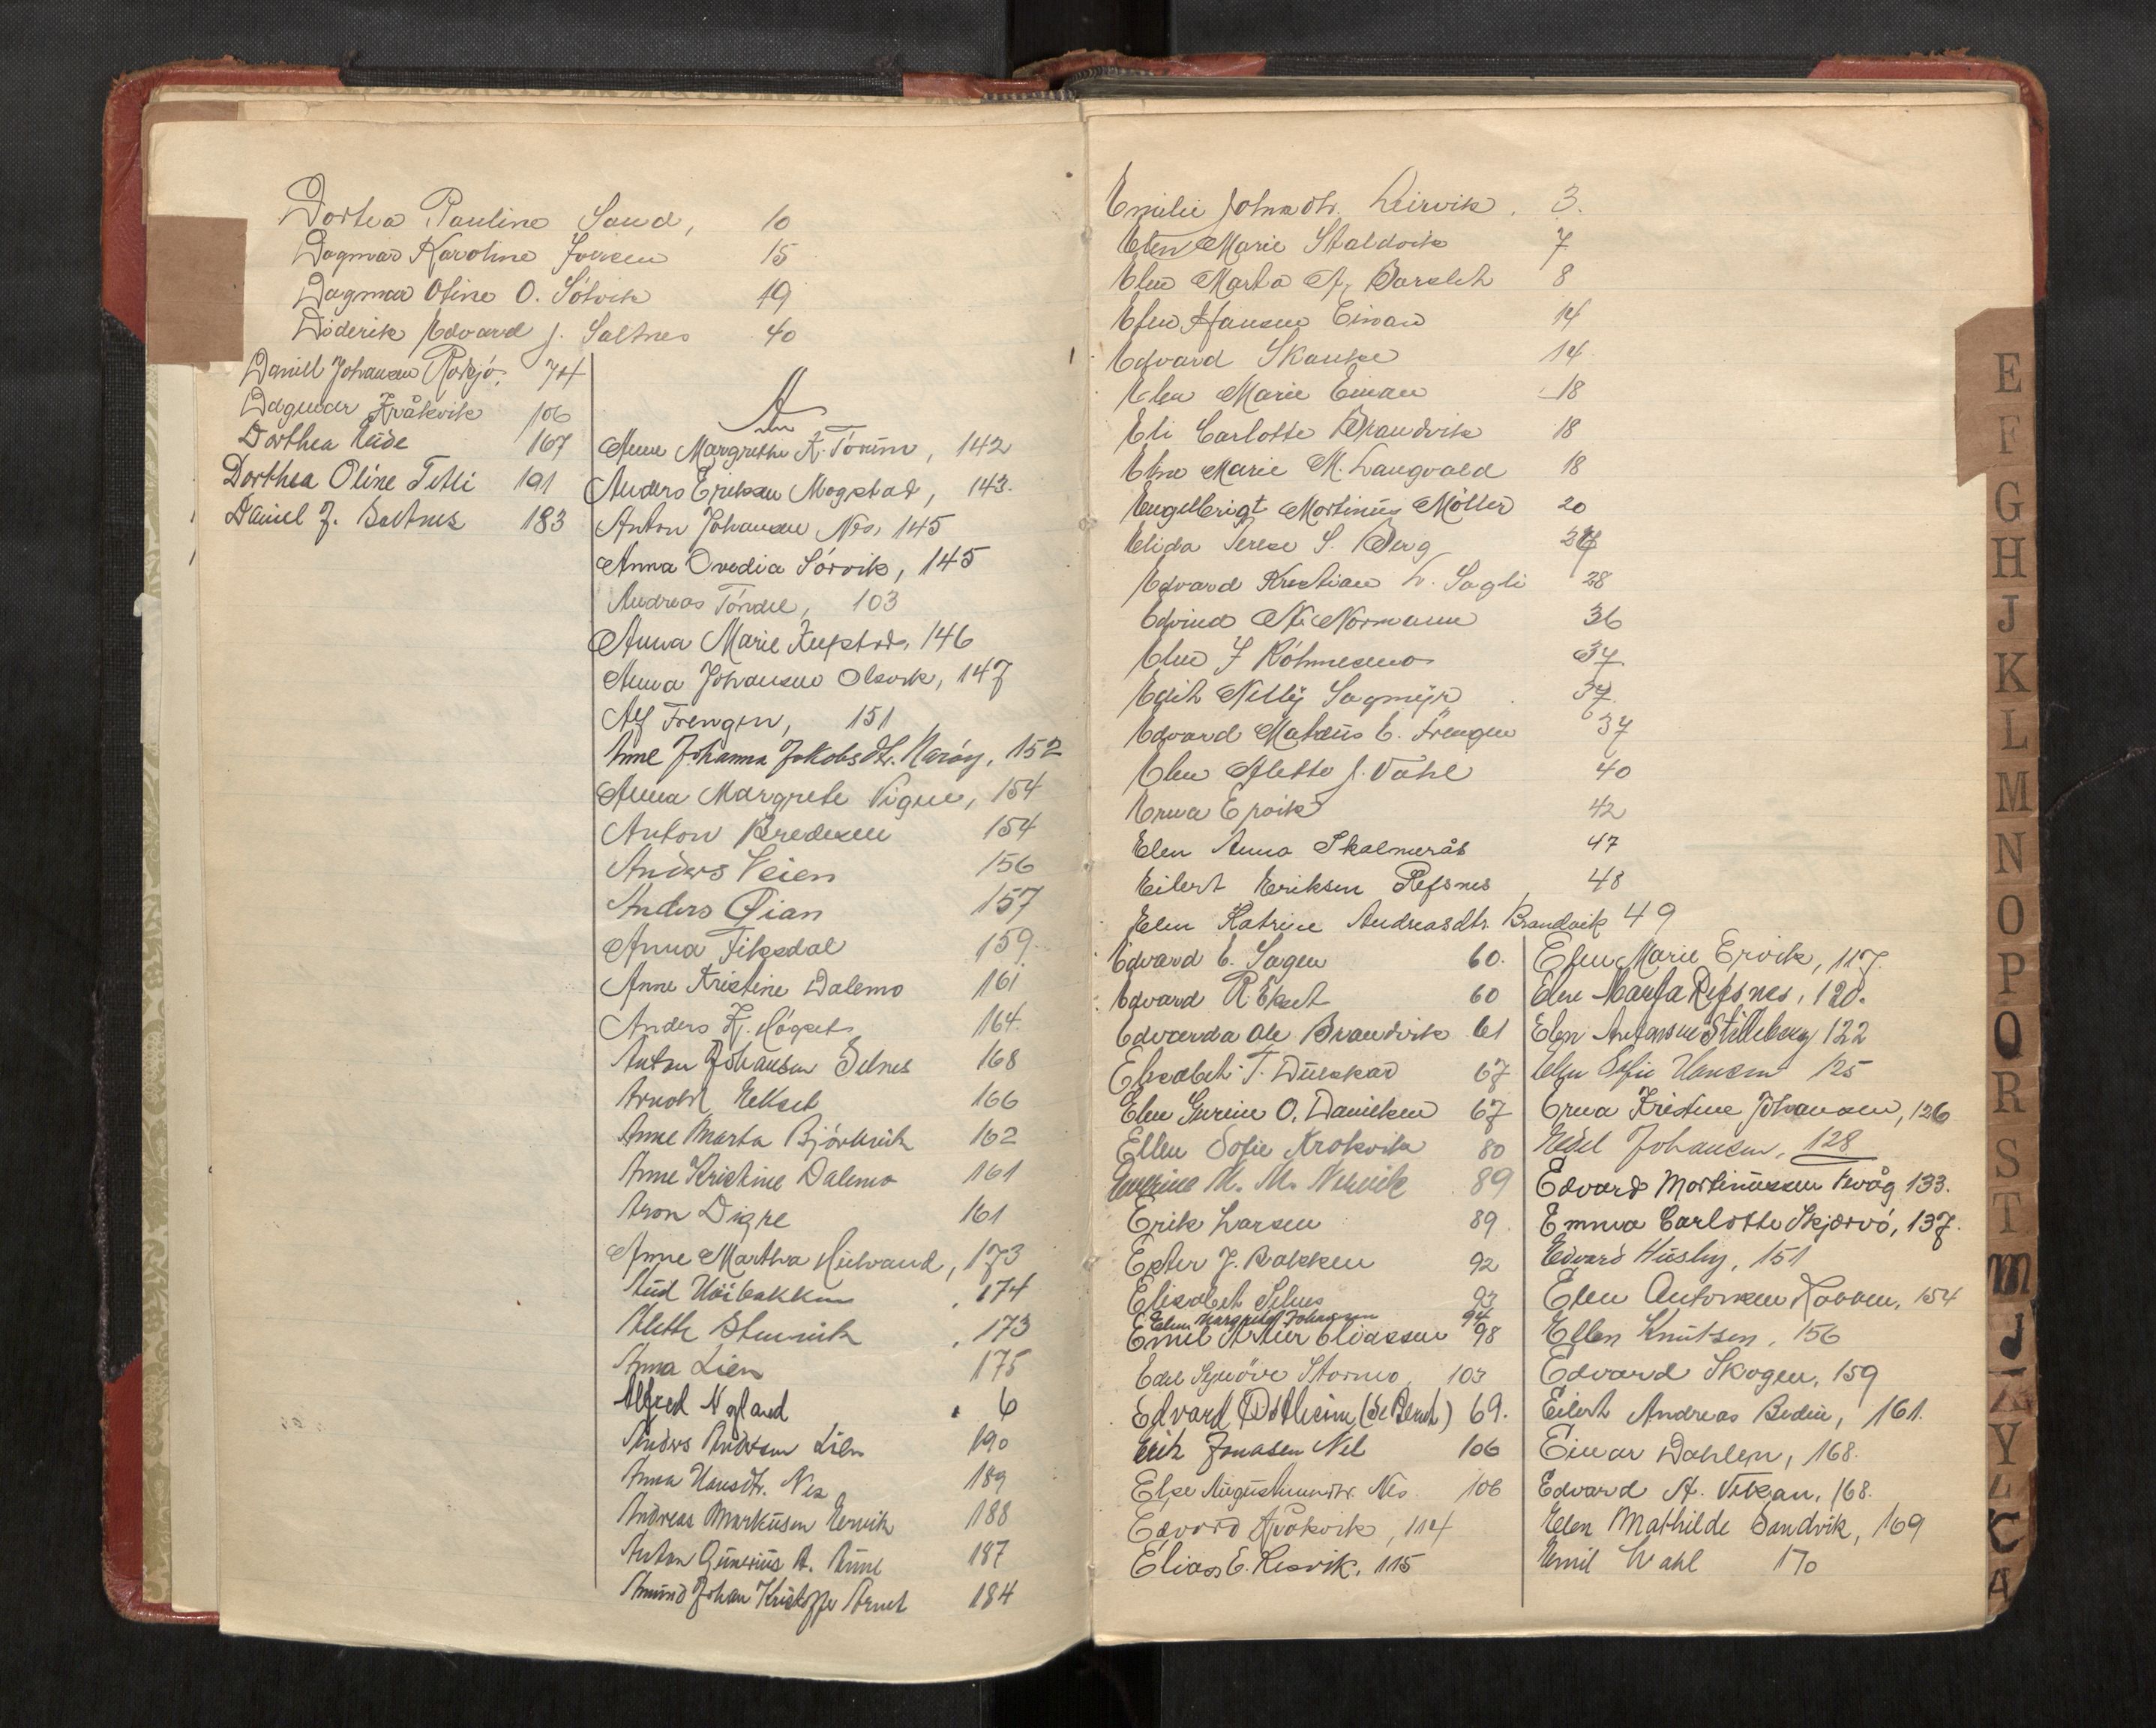 Dortea Pauline Sand, 10
Dagmar Karoline 15
Dagmar Oline O. Sólvik 19
Diderik Edvard J. Saltnes 40
Daniel Johansen 74
Dagmar Kråkvik 106
Dorthea 167
Dorthea Oline Tetli 191
Daniel J. Saltnes 183
A
Anne Margrethe K. 142
Anders Eriksen Mogstad, 143.
Anton Johansen Nes, 145
Anna Ovedia Sórvik, 145
Andreas Tóndel, 103
Anna Marie 146
Anna Johansen 147
Alf Frengen, 151
Anne Johanna Jakobsdtr. Naróy, 152
Anna Margrete Vigne, 154
Anton Bredesen 154
Anders Veien 156
Anders Qian 157
Anna Fiksdal 159.
Anne Kristine Dalemo 161
Anders K. 164.
Anton Johansen Selnes 168
Arnold Ekset 166
Anne Marta 162
Anne Kristine Dalemo 161
Aron Digre 161
Anne Martha 173
174
Alette 173
Anna Lien 175
Alfred 6
Anders Andersen Lien 190
Anna Hansdtr. Nes 189
Andreas Markŭsen Ervik 188
Anton Gŭnerius A. Aŭne 187
Amŭnd Johan Kristoffer 184
Emilie Johnsdtr. Leirvik. 3.
Elen Marie Staldvik 7
Elen Marta A. 8
Elen Hansen Einan 14
Edvard Skanke 14
Elen Marie Einan 18
Eli Carlotte Brandvik 18
Marie M. Langvald 18
Engelbrigt Martinŭs Möller 20
Elida Terese S. Berg
Edvard Kristian L. Sagli 28
Edvind Normann 36
Elen J 37.
Edit Nelly Sagmyr 37.
Edvard Mateŭs E. Frengen 37
Elen Alette J. Vahl 40
Erna Ervik 42
Elen Anna Skalmerås 47
Eilert Eriksen Refsnes, 48
Elen Katrine Andreasdtr. Brandvik 49
Edvard E. Sagen 60.
Edvard R. Ekset 60
Edvarda Ole Brandvik 61
Elisabet T. Dŭeskar 67
Elen Gurine O. Danielsen 67
Ellen Sofie Krokvik 80
M. M. Nervik 89
Erik Larsen 89.
Ester J. Bakken 92
Elisabet Selnes 93
Elen Margrete Johansen 94
Emil Artur Eliassen 98
Edel Synöve Stormo, 103
Edvard 69.
Erik Jonasen Nes 106
Else Aŭgustinusdtr. Nes. 106
Edvard Kråkvik, 114
Elias E. Lervik, 115
Elen Marie Ervik, 117.
Elen Marta Refsnes, 120.
Elen Antonsen 122
Elen Sofie Hansen 125
Erna Kristine Johansen, 126
Edel Johansen, 128
Edvard Martinŭssen Tevåg 133.
Emma Carlotte Skjærvó, 137.
Edvard Hŭsby, 151
Elen Antonsen 154
Ellen Knŭtsen, 156
Edvard Skogen, 159
Eilert Andreas Bodin, 161.
Einar Dahlen, 168.
Edvard A. Vitsan, 168.
Elen Mathilde Sandvik, 169
Emil Wahl 170
E
F
G
H
J
K
L
M
N
O
P
Q
R
S
T
Y
A